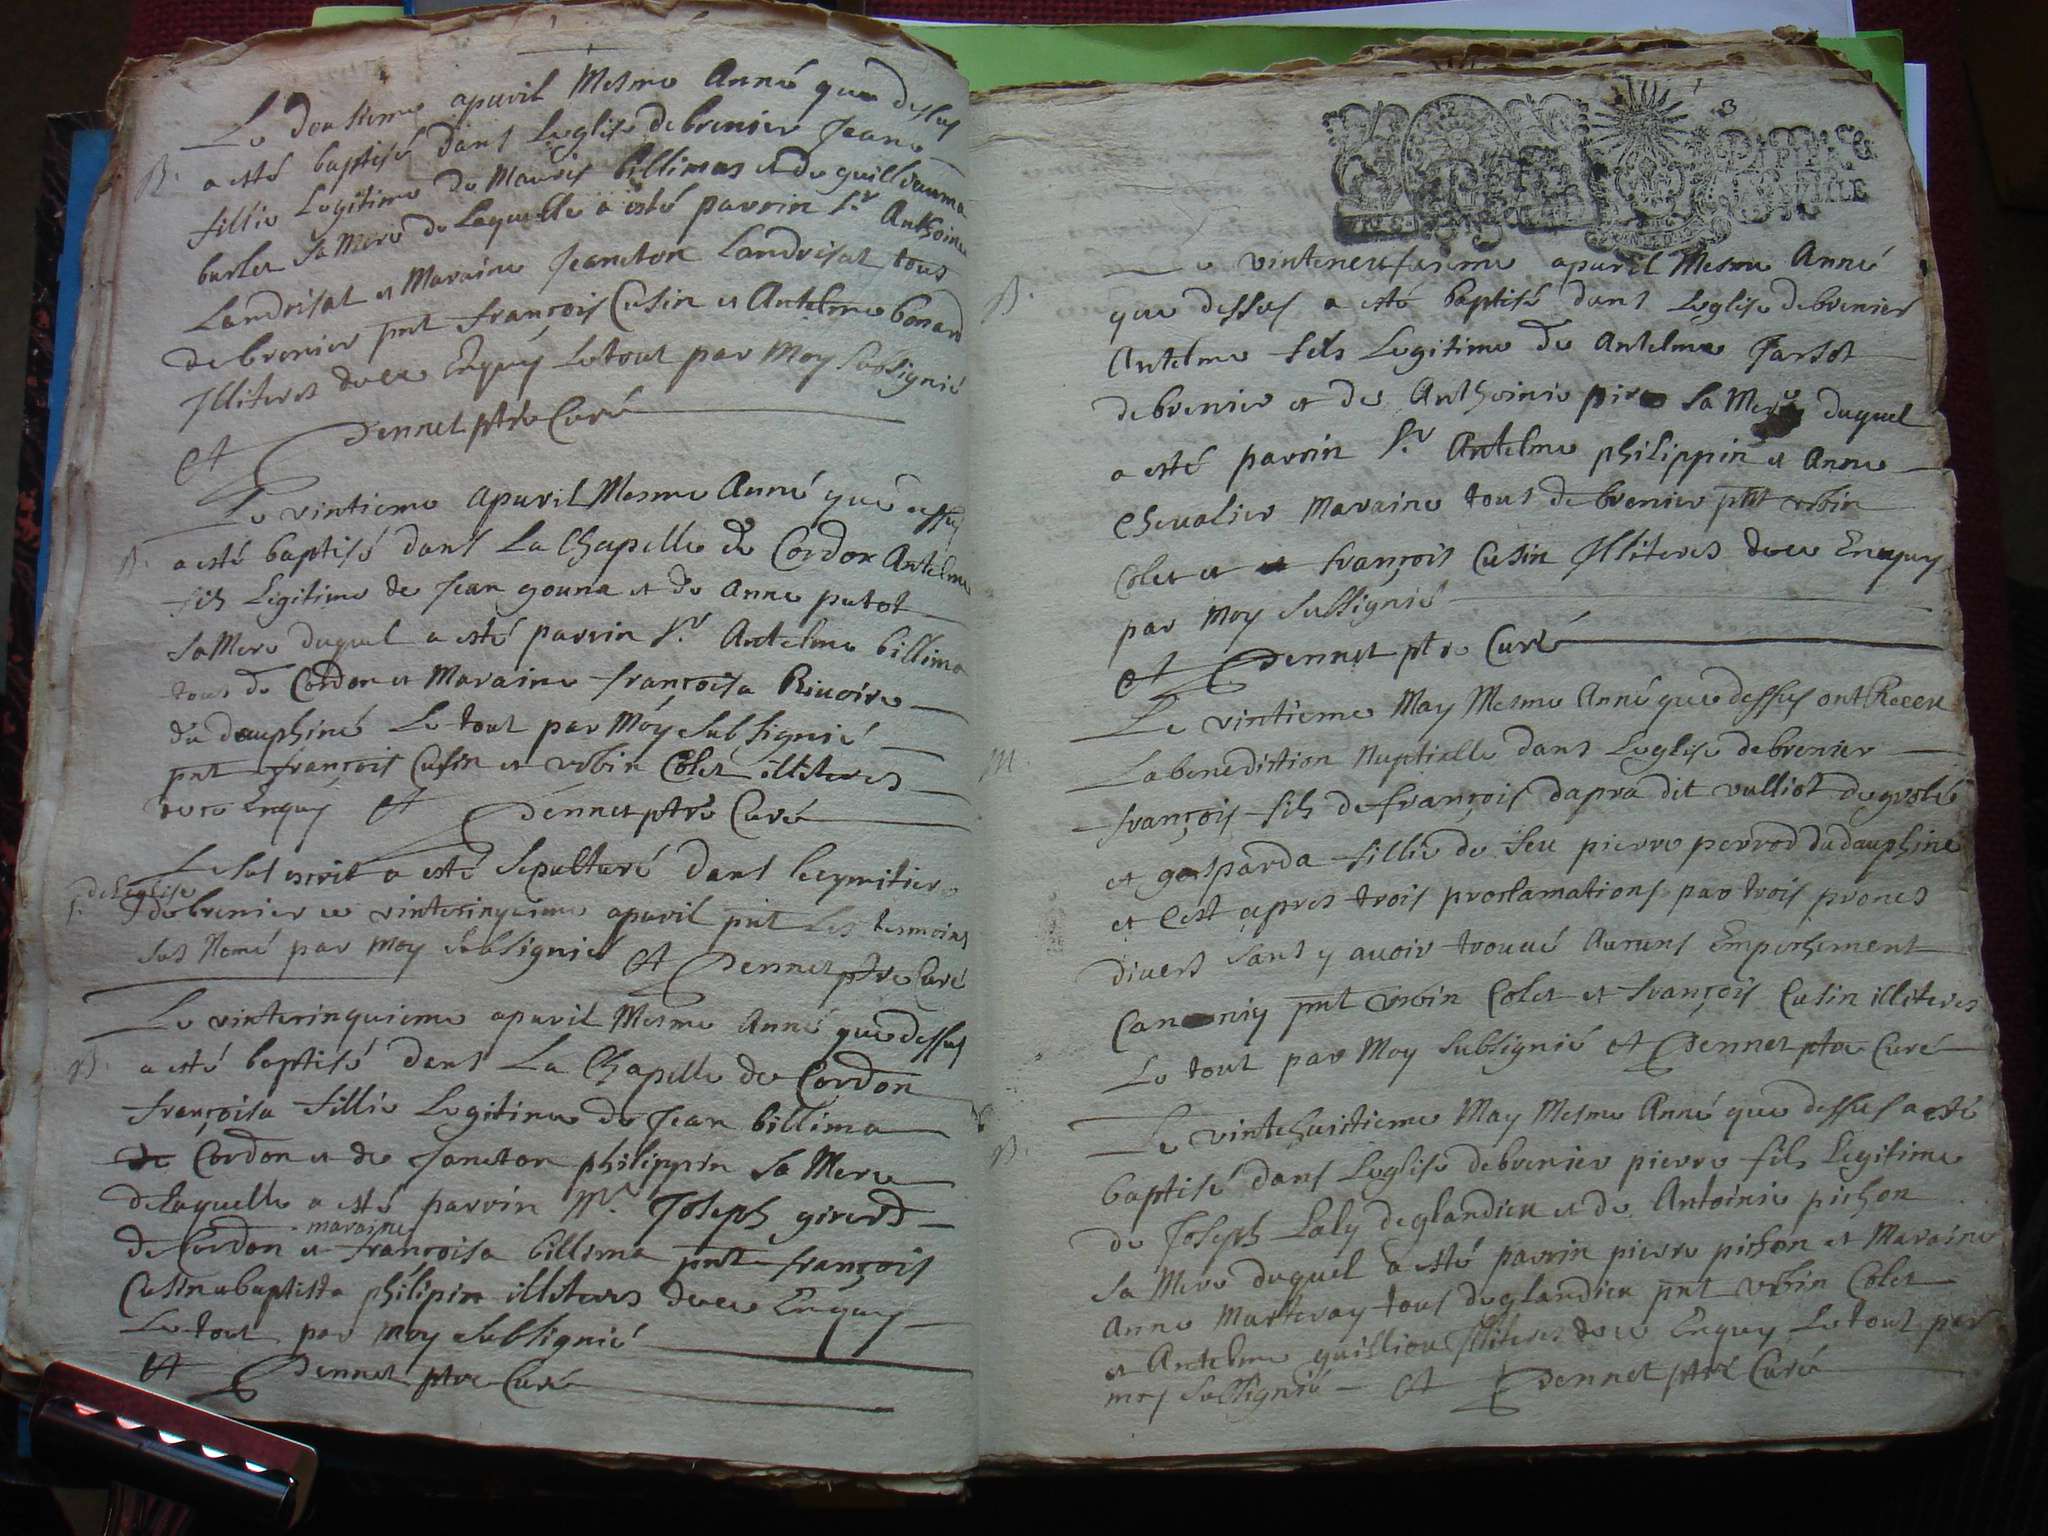 Le douzieme apuril Mesme Anné que dessus
B. a esté baptisé dans Leglise debrenier Jeane
fillie Legitime de Mauris billimas et de guilliauma
burlet sa Mere de Laquelle a esté parrin Sr Anthoine
Landrisat et Maraine Jeancton Landrisat tous
debrenier pnt françois Cusin et Antelme bonard
Illiteres deüe Enquis Le tout par Moy Subsignié
Et Dennet ptre Curé
Le vintieme apuril Mesme Anné que dessus
B. a esté baptisé dans La Chapelle de Cordon Antelme
fils Legitime de Jean gouna et de Anne putot
sa Mere duquel a esté parrin Sr Antelme billima
tous de Cordon et Maraine françoisa Riuoire
du dauphiné Le tout par Moy Subsignié
pnt françois Cusin et vrbin Colet illiteres
deüe Enquis Et Dennet ptre Curé
Le sus escrit a esté Sepulturé dans le cymitiere
S. de Leglise
debrenier ce vintecinquieme apuril pnt Les tesmoins
sus Nomé par Moy Subsignié Et Dennet ptre Curé
Le vintecinquieme apuril Mesme Anné que dessus
B. a esté baptisé dans La Chapelle de Cordon
françoisa fillie Legitime de Jean billima
de Cordon et de Jancton philippin sa Mere
de Laquelle a esté parrin Mr Joseph girerd
maraine
de Cordon et françoisa billima pnt françois
Cusin baptista philipin illiteres deüe Enquis
Le tout par Moy Subsignié
Et Dennet ptre Curé
3
PAPIER
Le vinteneufuieme apuril Mesme Anné
B. que dessus a esté baptisé dans Leglise debrenier
Antelme fils Legitime de Antelme Jarsot
debrenier et de Anthoinie pire sa Mere duquel
a esté parrin Sr Antelme philippin et Anne
Cheualier Maraine tous debrenier pnt vrbin
Colet et françois Cusin Illiteres deüe Enquis
par Moy Subsignié
Et Dennet ptre Curé
Le vintieme May Mesme Anné que dessus ont Receu
M. La benediction Nuptielle dans Leglise debrenier
françois fils de françois dapra dit vulliot de grolé
et gasparda fillie de feu pierre perrod du dauphiné
et Cest apres trois proclamations par trois prones
diuers sans y auoir trouué Aucuns Empeschement
Canoniq pnt vrbin Colet et françois Cusin illiteres
Le tout par Moy Subsignié Et Dennet ptre Curé
Le vintehuictieme May Mesme Anné que dessus a esté
B. baptisé dans Leglise debrenier pierre fils Legitime
de Joseph Laly de glandieu et de Antoinie pichon
sa Mere duquel a esté parrin pierre pichon et Maraine
Anne Marteray tous de glandieu pnt vrbin Colet
et Antelme guilliou Illiteres deüe Enquis Le tout par
moy Subsignié Et Dennet ptre Curé